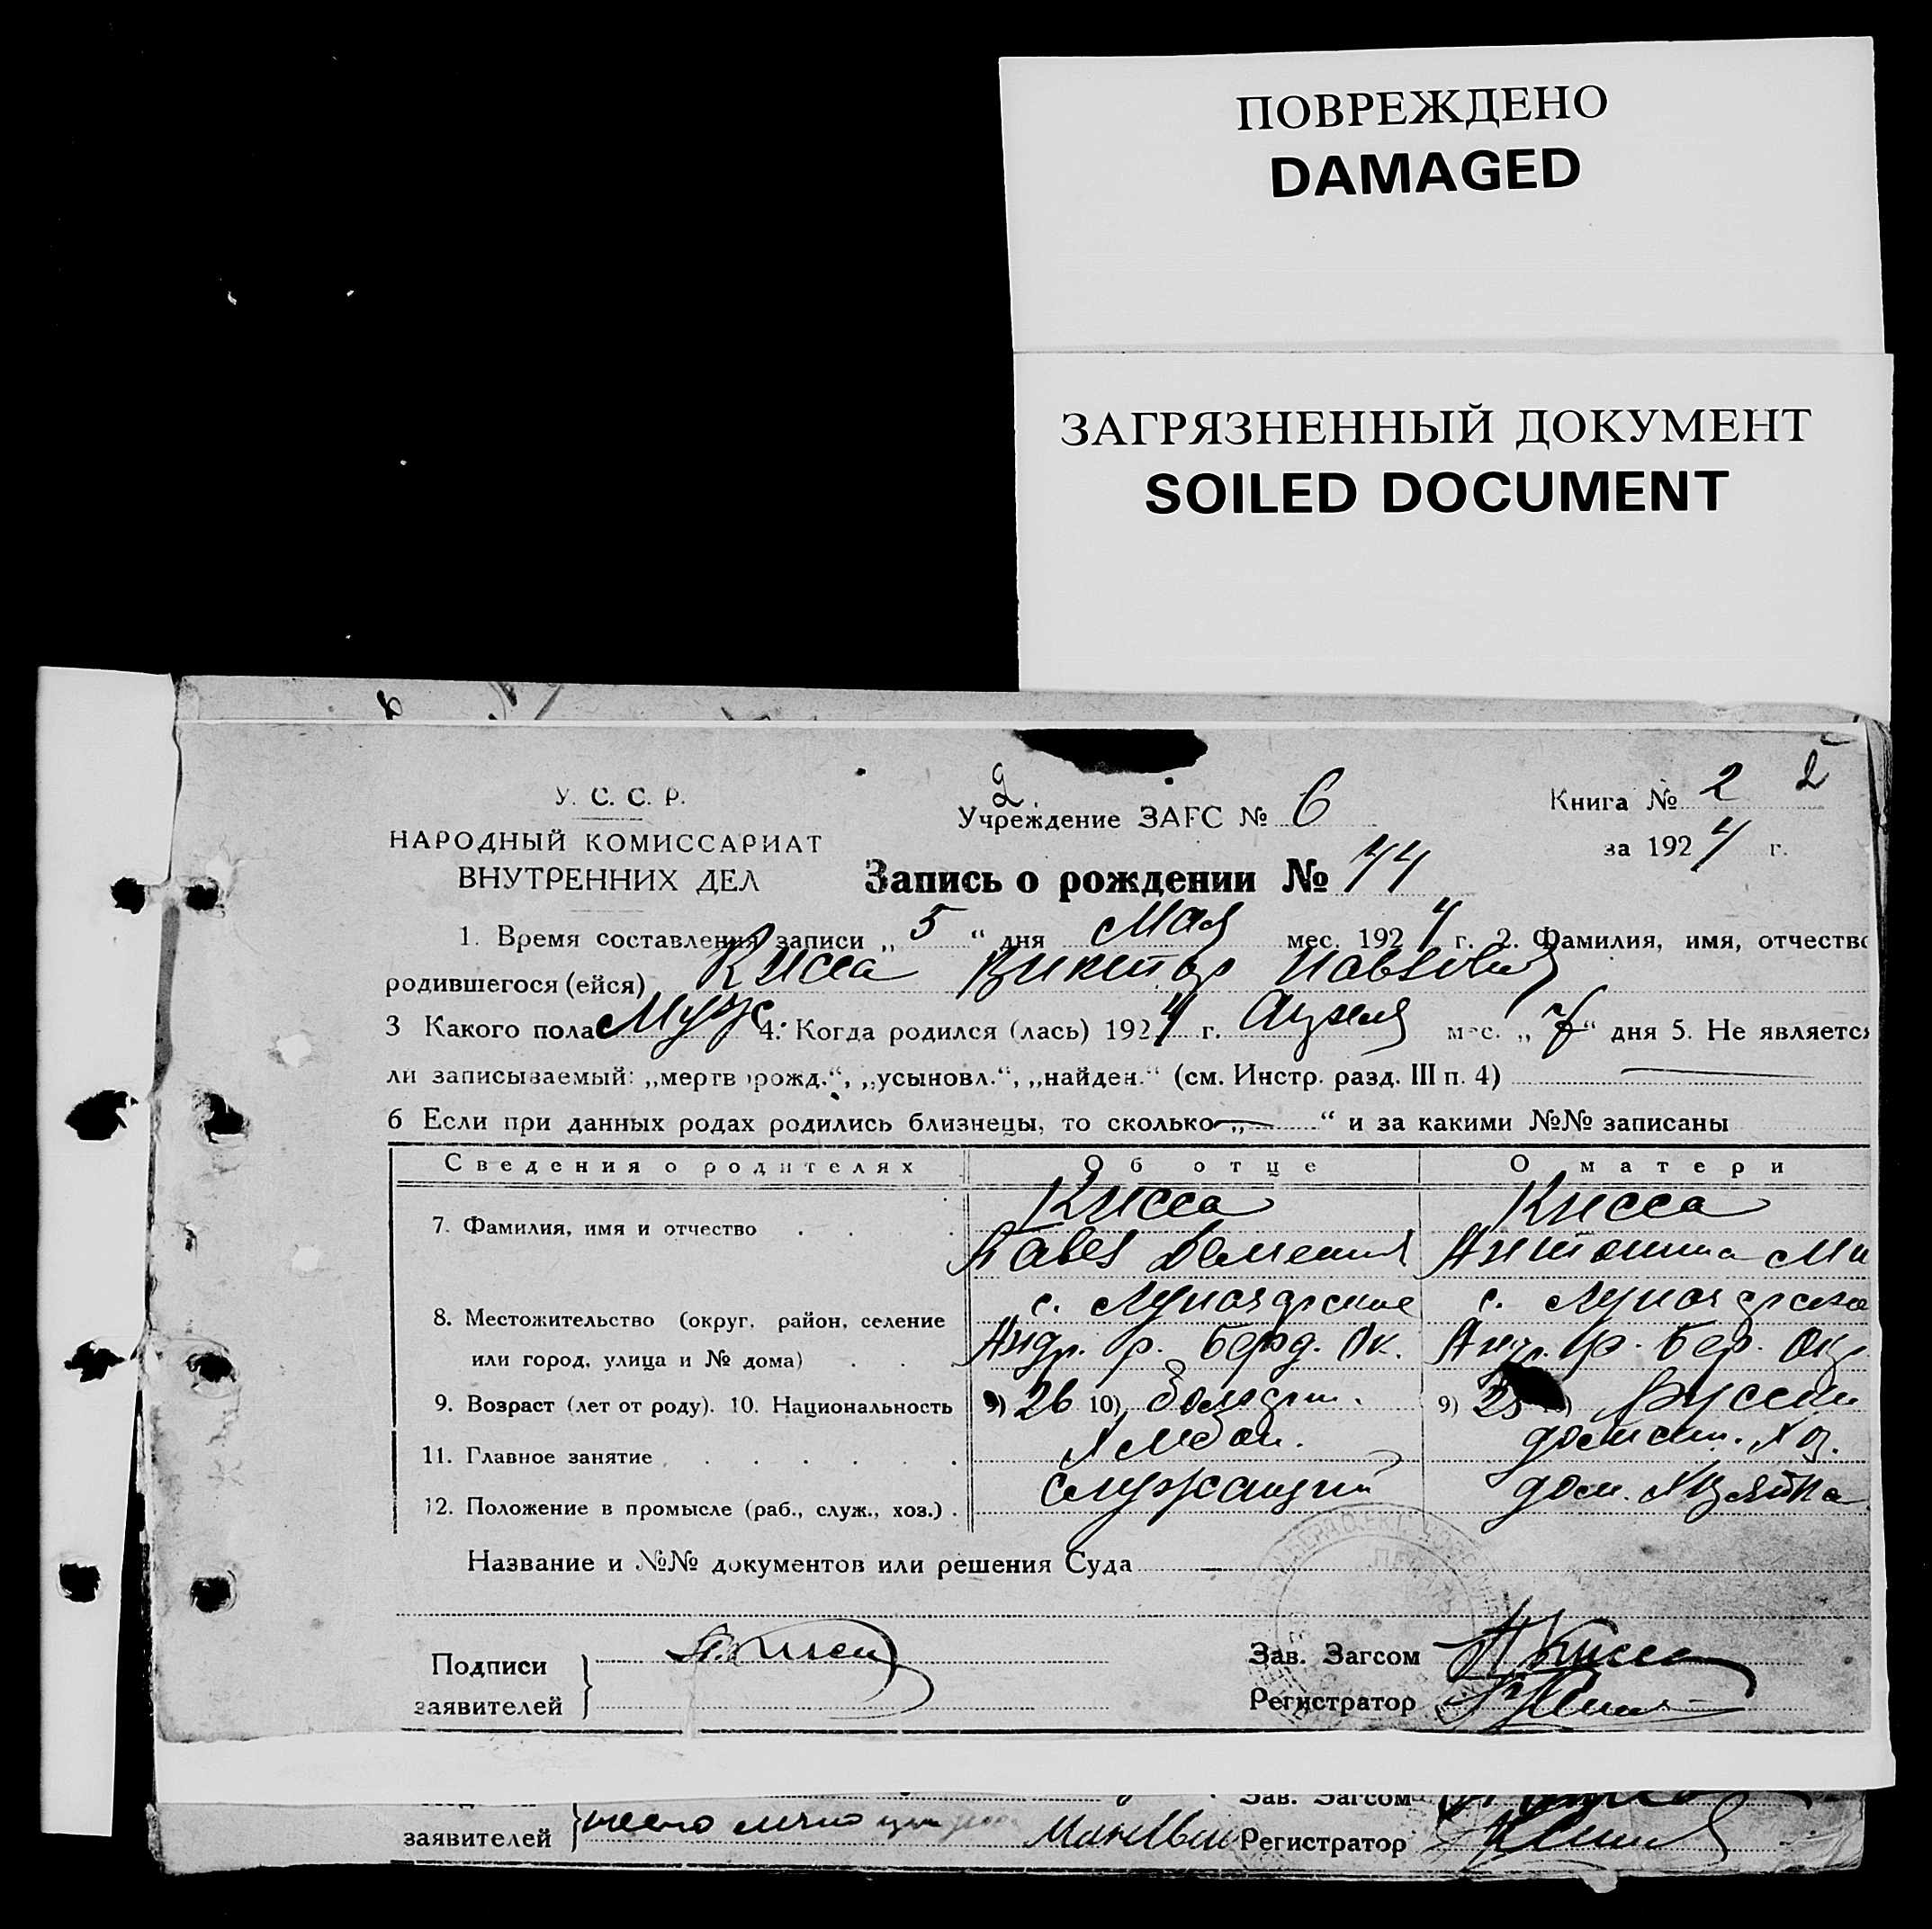 ПОВРЕЖДЕНО
DAMAGED
ЗАГРЯЗНЕННЫЙ ДОКУМЕНТ
SOILED DOCUMENT
У. С. С. Р.
НАРОДНЫЙ КОМИССАРИАТ
ВНУТРЕННИХ ДЕЛ
2
Учреждение ЗАГС № 6
Книга № 2 2
за 1924 г.
Запись о рождении № 44
1. Время составления записи „ 5 “ дня Мая мес. 1924 г. 2. Фамилия, имя, отчество
родившегося (ейся) Кисса Виктор Павлович
3 Какого пола Муж 4. Когда родился (лась) 1924 г. Апреля мес. „ 7 “ дня 5. Не является
ли записываемый: „мертворожд.“, „усыновл.“, „найден.“ (см. Инстр. разд. III п. 4) —
6 Если при данных родах родились близнецы, то сколько „ — “ и за какими №№ записаны
Сведения о родителях Об отце О матери
7. Фамилия, имя и отчество Кисса Кисса
Павел Антонина Ми
8. Местожительство (округ, район, селение с. с.
или город, улица и № дома) Андр. р. Берд. Ок. Андр. р. Бер. Окр
9. Возраст (лет от роду). 10. Национальность 9) 26 10) 9) Русск
11. Главное занятие домаш. хоз.
12. Положение в промысле (раб., служ., хоз.) служащий дом. хозяйка
Название и №№ документов или решения Суда —
Подписи
заявителей
П. Кисса
Зав. Загсом П Кисса
Регистратор
Зав. Загсом
заявителей Регистратор